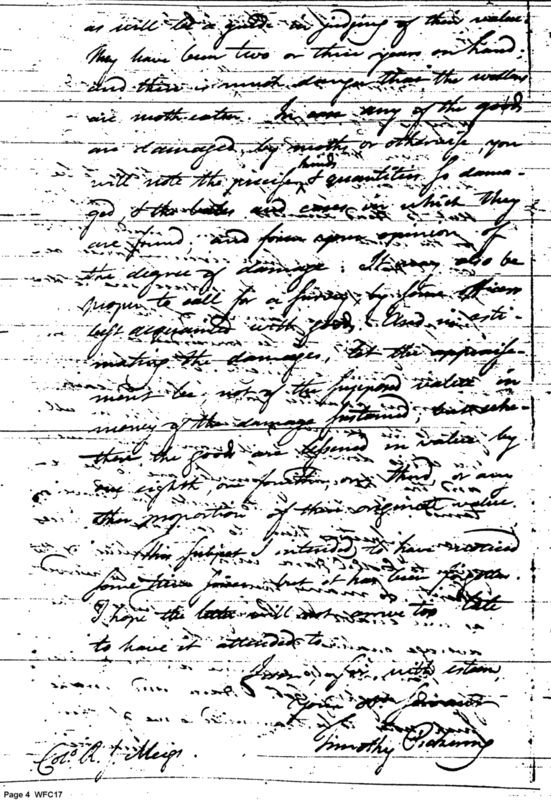 as will be a guide in judging of their value.
They have been two or three years on hand:
and there is much danger that the wollens
are moth eaten. In case any of the goods
are damaged by moths or otherwise, you
kinds
will note the precise & quantities so dama-
ged, & the bales and cases in which they
are found; and form your opinion of
the degree of damage: It may also be
proper to call for a survey, by some officers
best acquainted with goods. And in esti-
mating the damages, let the appraise-
ment be, not of the supposed value in
money of the damage sustained; but whe-
ther the goods are lessened in value by
one eighth, one fourth, one third, or any
other proportion of their original value.
This subject I intended to have noticed
some time since; but it has been forgotten.
I hope the letter will not arrive too late
to have it attended to.
I am, sir, with esteem,
Your servant
Timothy Pickering
Colo. R. J. Meigs.
Page 4 WFC17